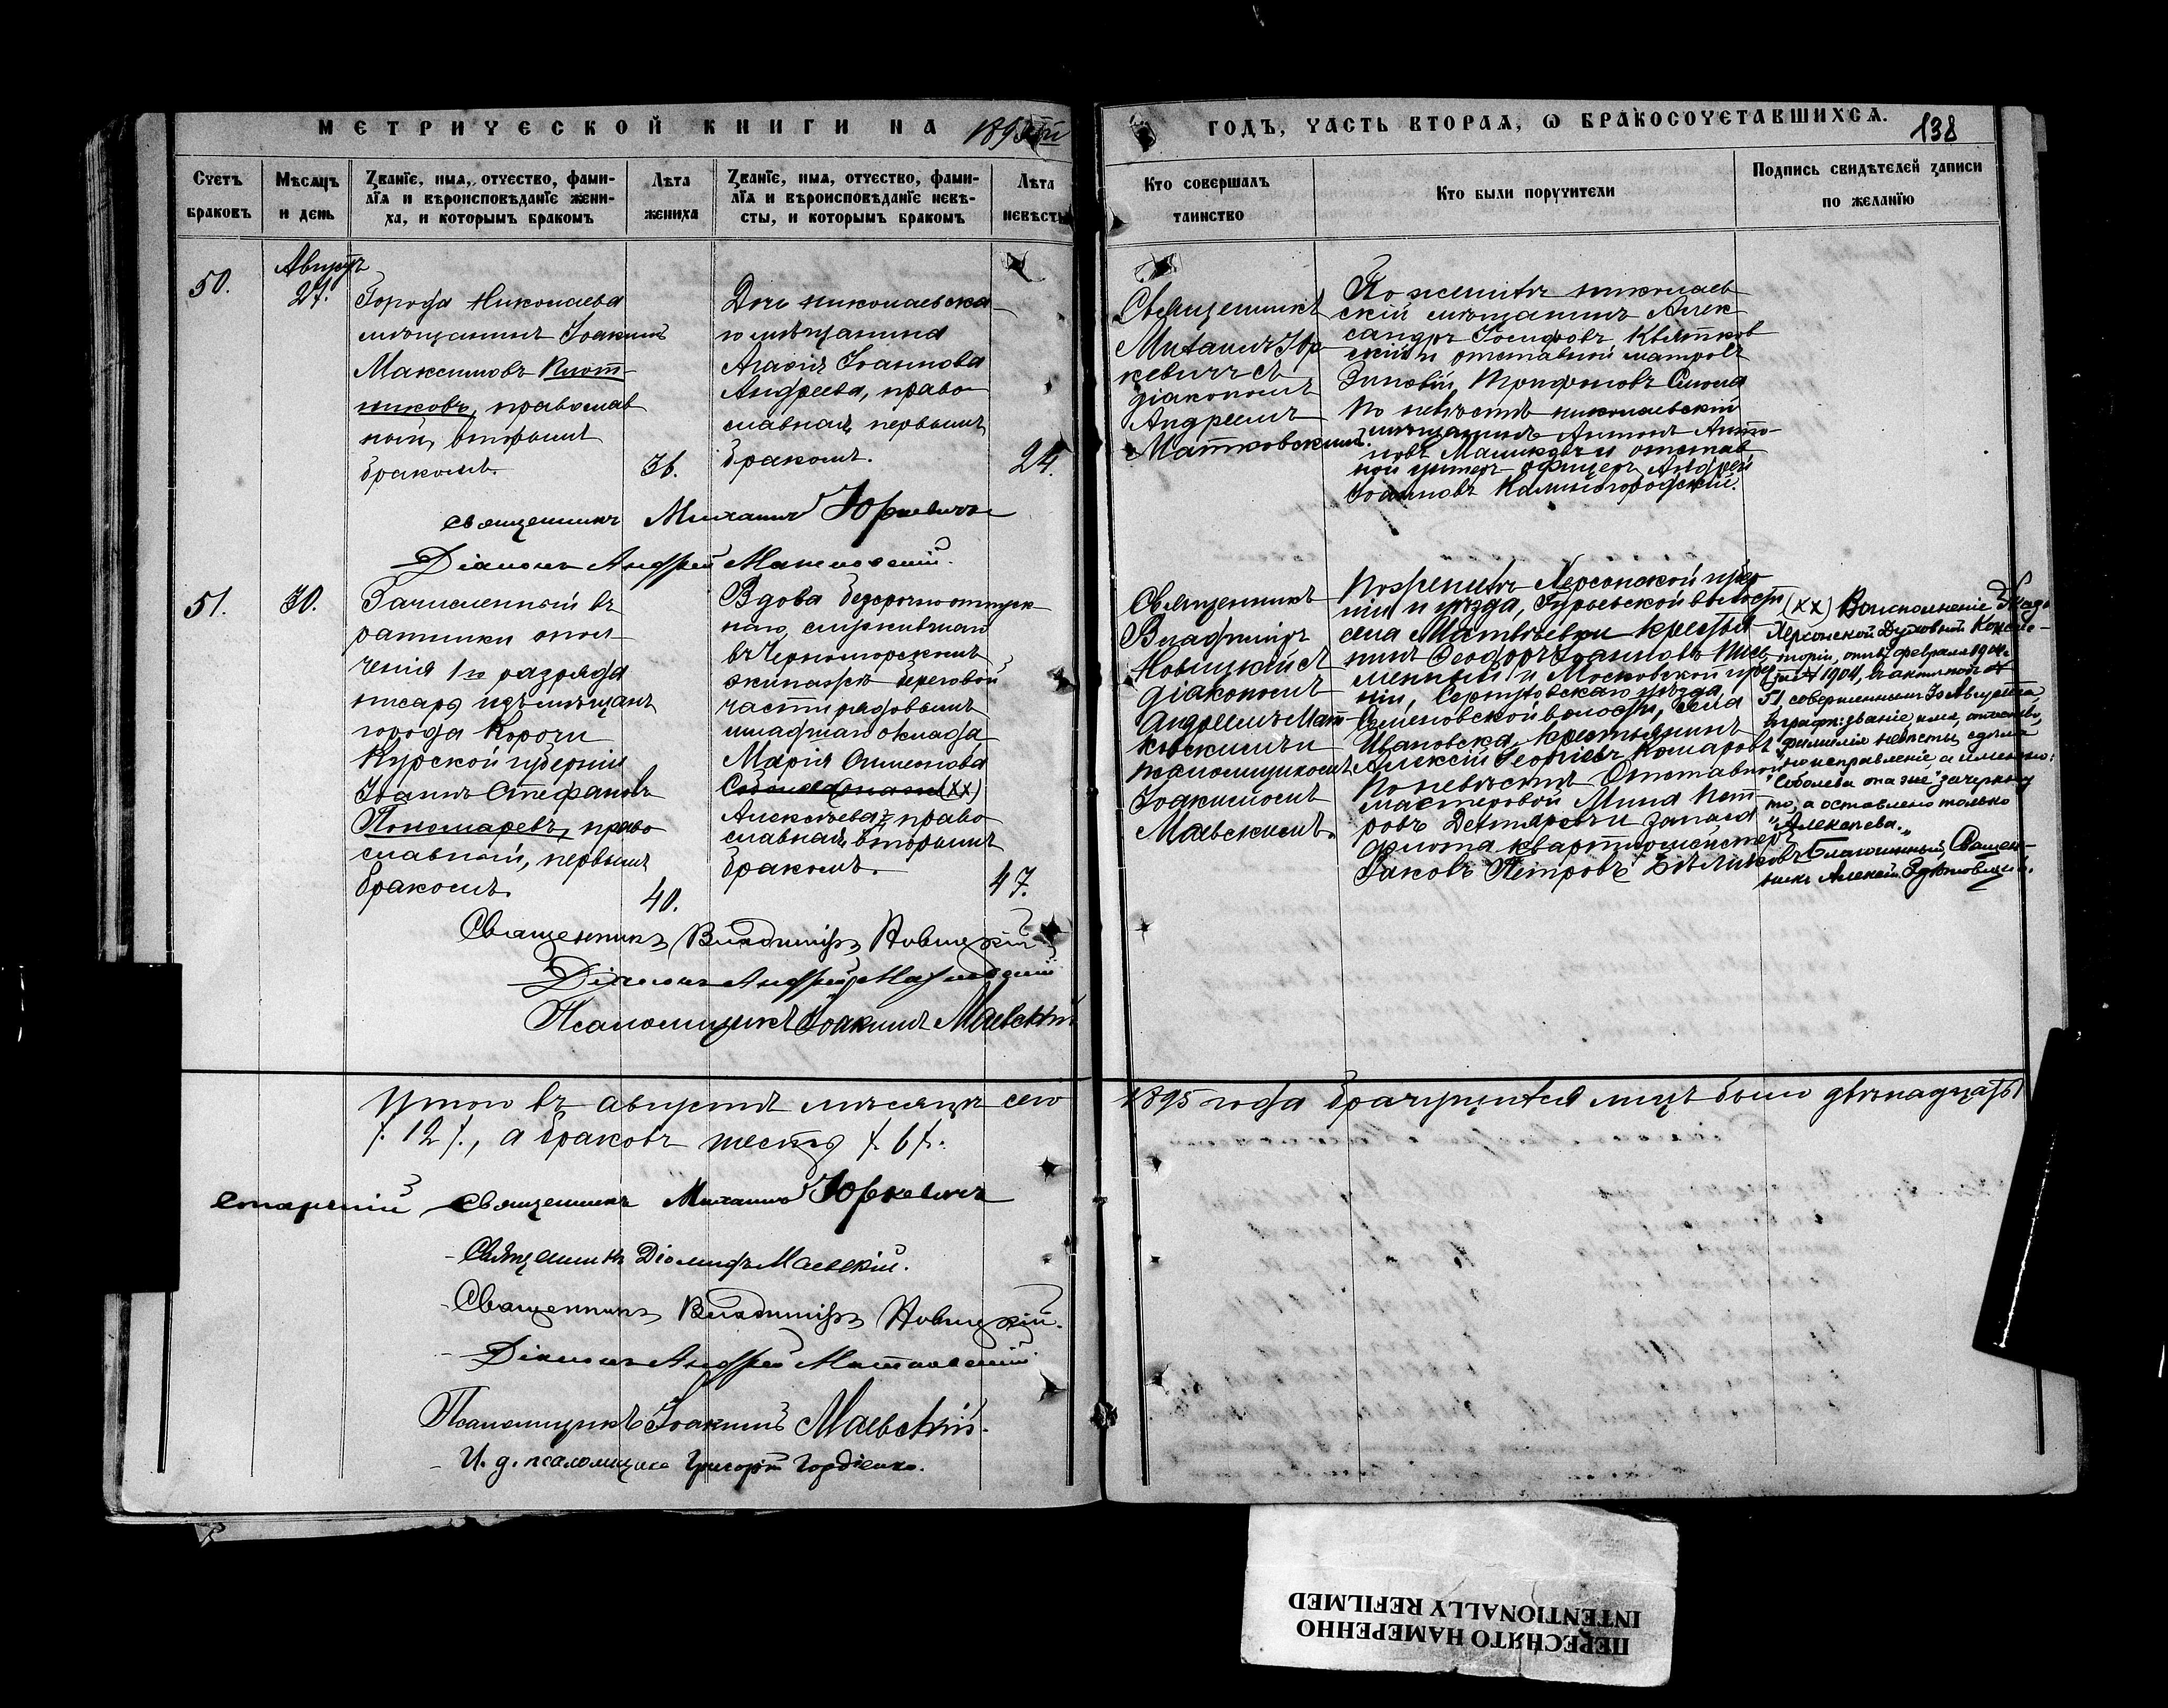 МЕТРИЧЕСКОЙ КНИГИ НА 1895й ГОДЪ, ЧАСТЬ ВТОРАЯ, Ѡ БРАКОСОЧЕТАВШИХСЯ. 138
Счетъ браковъ
Мѣсяцъ и день
Званїе, имя, отчество, фами-
лїя и вѣроисповѣданїе жени-
ха, и которымъ бракомъ
Лѣта жениха
Званїе, имя, отчество, фами-
лїя и вѣроисповѣданїе невѣ-
сты, и которымъ бракомъ
Лѣта невѣсты
Кто совершалъ
таинство
Кто были поручители
Подпись свидѣтелей записи
по желанїю
50.
Августъ
27.
Города Николаева
мѣщанинъ Іоакимъ
Максимовъ Плот-
никовъ, православ
ный, вторымъ
бракомъ.
36.
Дочь николаевска-
го мѣщанина
Агафія Іоаннова
Андреева, право
славная, первымъ
бракомъ.
24.
Священникъ
Михаилъ Юр
кевичъ съ
діакономъ
Андреемъ
Матковскимъ.
По женихѣ николаев
скій мѣщанинъ Алек
сандръ Іосифовъ Квятков
скій и отставной матросъ
Зиновій Трофимовъ
По невѣстѣ николаевскій
мѣщанинъ Антонъ Анто-
новъ Маликовъ и отстав
ной унтеръ-офицеръ Андрей
Іоанновъ Калиногородскій.
Священникъ Михаилъ Юркевичъ
Діаконъ Андрей Матковскій.
51.
30.
Зачисленный въ
ратники опол
ченія 1го разряда
писарь изъ мѣщанъ
города Корочи
Курской губерніи
Іоаннъ Стефановъ
Пономаревъ, право
славный, первымъ
бракомъ.
40.
Вдова безсрочноотпуск
наго, служившаго
въ Черноморскихъ
экипажѣ береговой
части рядовымъ
младшаго оклада
Марія Симеонова
Соболева она же (хх)
Алексѣева, право
славная, вторымъ
бракомъ.
47.
Священникъ
Владиміръ
Новицкій съ
діакономъ
Андреемъ Мат-
ковскимъ и
псаломщикомъ
Іоакимомъ
Маевскимъ.
По женихѣ Херсонской губер
ніи и уѣзда, волости
села Матвѣевки крестья
нинъ Ѳеодоръ Іоанновъ
и Московской губер
ніи, Серпуховскаго уѣзда,
Семеновской волости, села
Ивановска крестьянинъ
Алексій Георгіевъ Комаровъ
По невѣстѣ Отставной
мастеровой Мина Пет-
ровъ Дегтяревъ и запаса
флота квартирмейстеръ
Іаковъ Петровъ Бѣликовъ
(хх) Во исполненіе Указа
Херсонской Духовной Консис-
торіи, отъ февраля 1904 г.
1904, въ актовой ст
51, совершеннымъ 30 Августа
въ графѣ: званіе, имя, отчество,
фамилія невѣсты, сдѣла
но исправленіе, а именно:
"Соболева она же" зачеркну
то, а оставлено только
"Алексѣева."
Благочинный, Священ-
никъ Алексій
Священникъ Владиміръ Новицкій
Діаконъ Андрей Матковскій
Псаломщикъ Іоакимъ Маевскій
Итого въ августѣ мѣсяцѣ сего 1895 года брачущихся лицъ было двѣнадцать
/. 12 /., а браковъ шесть /. 6 /.
Старшій Священникъ Михаилъ Юркевичъ
- Священникъ Діомидъ Маевскій.
- Священникъ Владиміръ Новицкій.
- Діаконъ Андрей Матковскій
Псаломщикъ Іоакимъ Маевскій.
- И. д. псаломщика Григорій Гордіенко.
ПЕРЕСНЯТО НАМЕРЕННО
INTENTIONALLY REFILMED